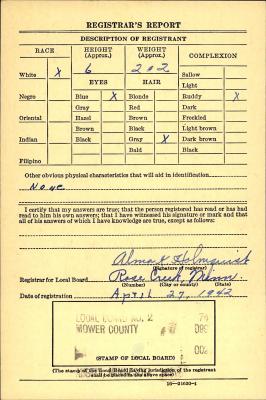 REGISTRAR'S REPORT
DESCRIPTION OF REGISTRANT
RACE HEIGHT (Approx.) WEIGHT (Approx.) COMPLEXION
White X 6 202 Sallow
EYES HAIR Light
Negro Blue X Blonde Ruddy X
Gray Red Dark
Oriental Hazel Brown Freckled
Brown Black Light brown
Indian Black Gray X Dark brown
Bald Black
Filipino
Other obvious physical characteristics that will aid in identification
None
I certify that my answers are true; that the person registered has read or has had
read to him his own answers; that I have witnessed his signature or mark and that
all of his answers of which I have knowledge are true, except as follows:
Holmquist
(Signature of registrar)
Registrar for Local Board Rose Creek, Minn.
(Number) (City or county) (State)
Date of registration April 27, 1942
LOCAL BOARD NO. 2
MOWER COUNTY
(STAMP OF LOCAL BOARD)
(The stamp of the Local Board having jurisdiction of the registrant
shall be placed in the above space)
16—21630-1